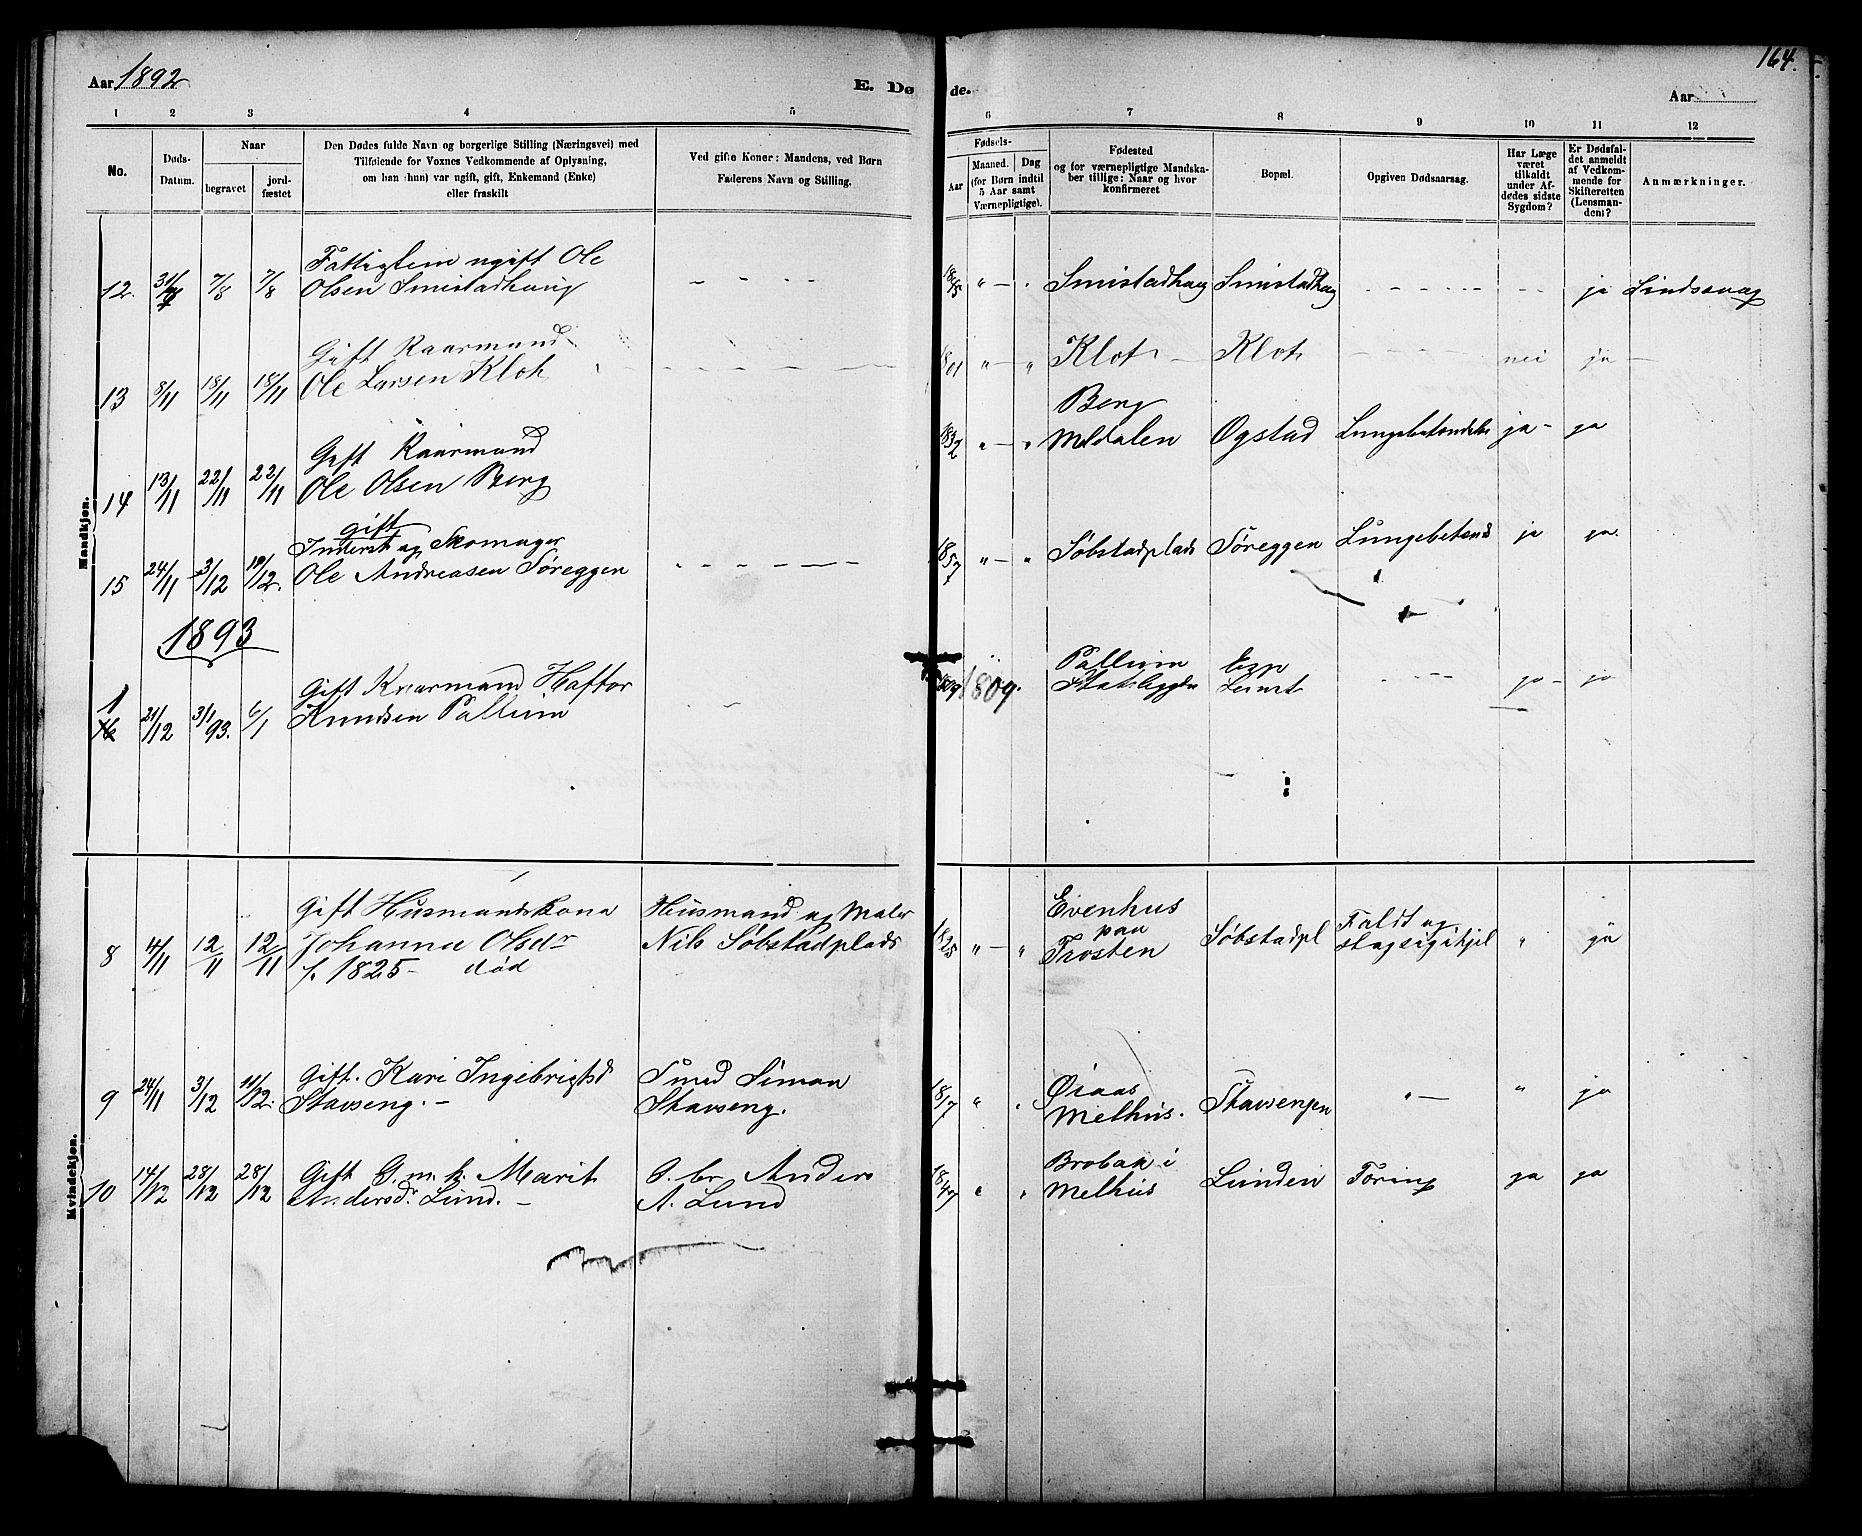 Aar 1892
E. Dø
de.
164.
Aar
1 2 3 4 5 6 7 8 9 10 11 12
No.
Døds-
Datum.
Naar
begravet
jord-
fæstet
Den Dødes fulde Navn og borgerlige Stilling (Næringsvei) med
Tilføiende for Voxnes Vedkommende af Oplysning,
om han (hun) var ugift, gift, Enkemand (Enke)
eller fraskilt
Ved gifte Koner: Mandens, ved Børn
Faderens Navn og Stilling.
Fødsels-
Aar
Maaned. Dag
(for Børn indtil
5 Aar samt
Værnepligtige).
Fødested
og for værnepligtige Mandska-
ber tillige: Naar og hvor
konfirmeret
Bopæl.
Opgiven Dødsaarsag.
Har Læge
været
tilkaldt
under Af-
dødes sidste
Sygdom?
Er Dødsfal-
det anmeldt
af Vedkom-
mende for
Skifteretten
(Lensman-
den)?
Anmærkninger.
Mandkjøn.
Fattiglem ugift Ole
12. 31/7 7/8 7/8 Olsen Smistadhaug - - - - " - " Smistadhaug Smistadhaug - - - - - - - ja Sindssvag
Gift Kaarmand
13 8/11 18/11 18/11 Ole Larsen Klot 1801 " - " Klot - Klot - - - - nei ja -
Berg
Gift Kaarmand
14 13/11 22/11 22/11 Ole Olsen Berg 1832 " - " Meldalen Ogstad Lungebetændelse ja - ja
gift
Inderst og Skomager
15 24/11 3/12 19/12. Ole Andreasen Søreggen - - - - - - 1857 " - " Søbstadplads Søreggen Lungebetænd ja ja.
1893
Gift Kaarmand Haftor
1 16 21/12 3/1 93. 6/1 Knudsen Pallium - 1809 1809. Pallium - - - - ja - ja
Kvindekjøn.
Gift Husmandskona Husmand og Maler Evenhus
8 4/11 12/11 12/11 Johanna Olsdr Nils Søbstadplads 1825 " - " paa Søbstadpl Faldt og " ja
f. 1825 - død Frosten
Gift. Kari Ingebrigtsd Smed Simon Øiaas
9 24/11 3/12 11/12. Stavseng. - Stavseng. 1817 " " Melhus. Stavsengen " - " ja
Gift G.m.k. Marit G. br Anders Brobak i
10 14/12 28/12 28/12 Andersdr Lund. - A. Lund 1847 " " Melhus Lunden Tæring ja ja